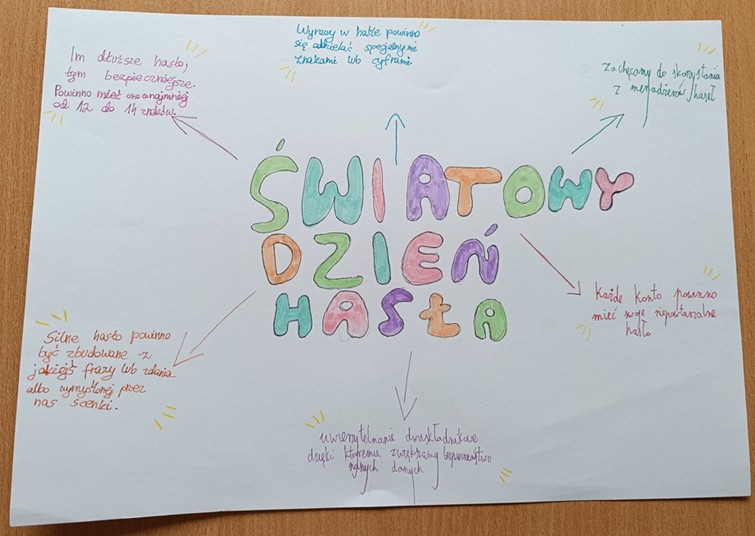 Im dłuższe hasło,
tym bezpieczniejsze.
Powinno mieć ono conajmniej
od 12 do 14 znaków.
Wyrazy w haśle powinno
się oddzielać specjalnymi
znakami lub cyframi.
Zachęcamy do skorzystania
z menadżera haseł
ŚWIATOWY
DZIEŃ
HASŁA
Każde konto powinno
mieć swoje niepowtarzalne
hasło
Silne hasło powinno
być zbudowane z
jakiejś frazy lub zdania
albo wymyślonej przez
nas scenki.
uwierzytelnianie dwuskładnikowe
dzięki któremu zwiększamy bezpieczeństwo
naszych danych